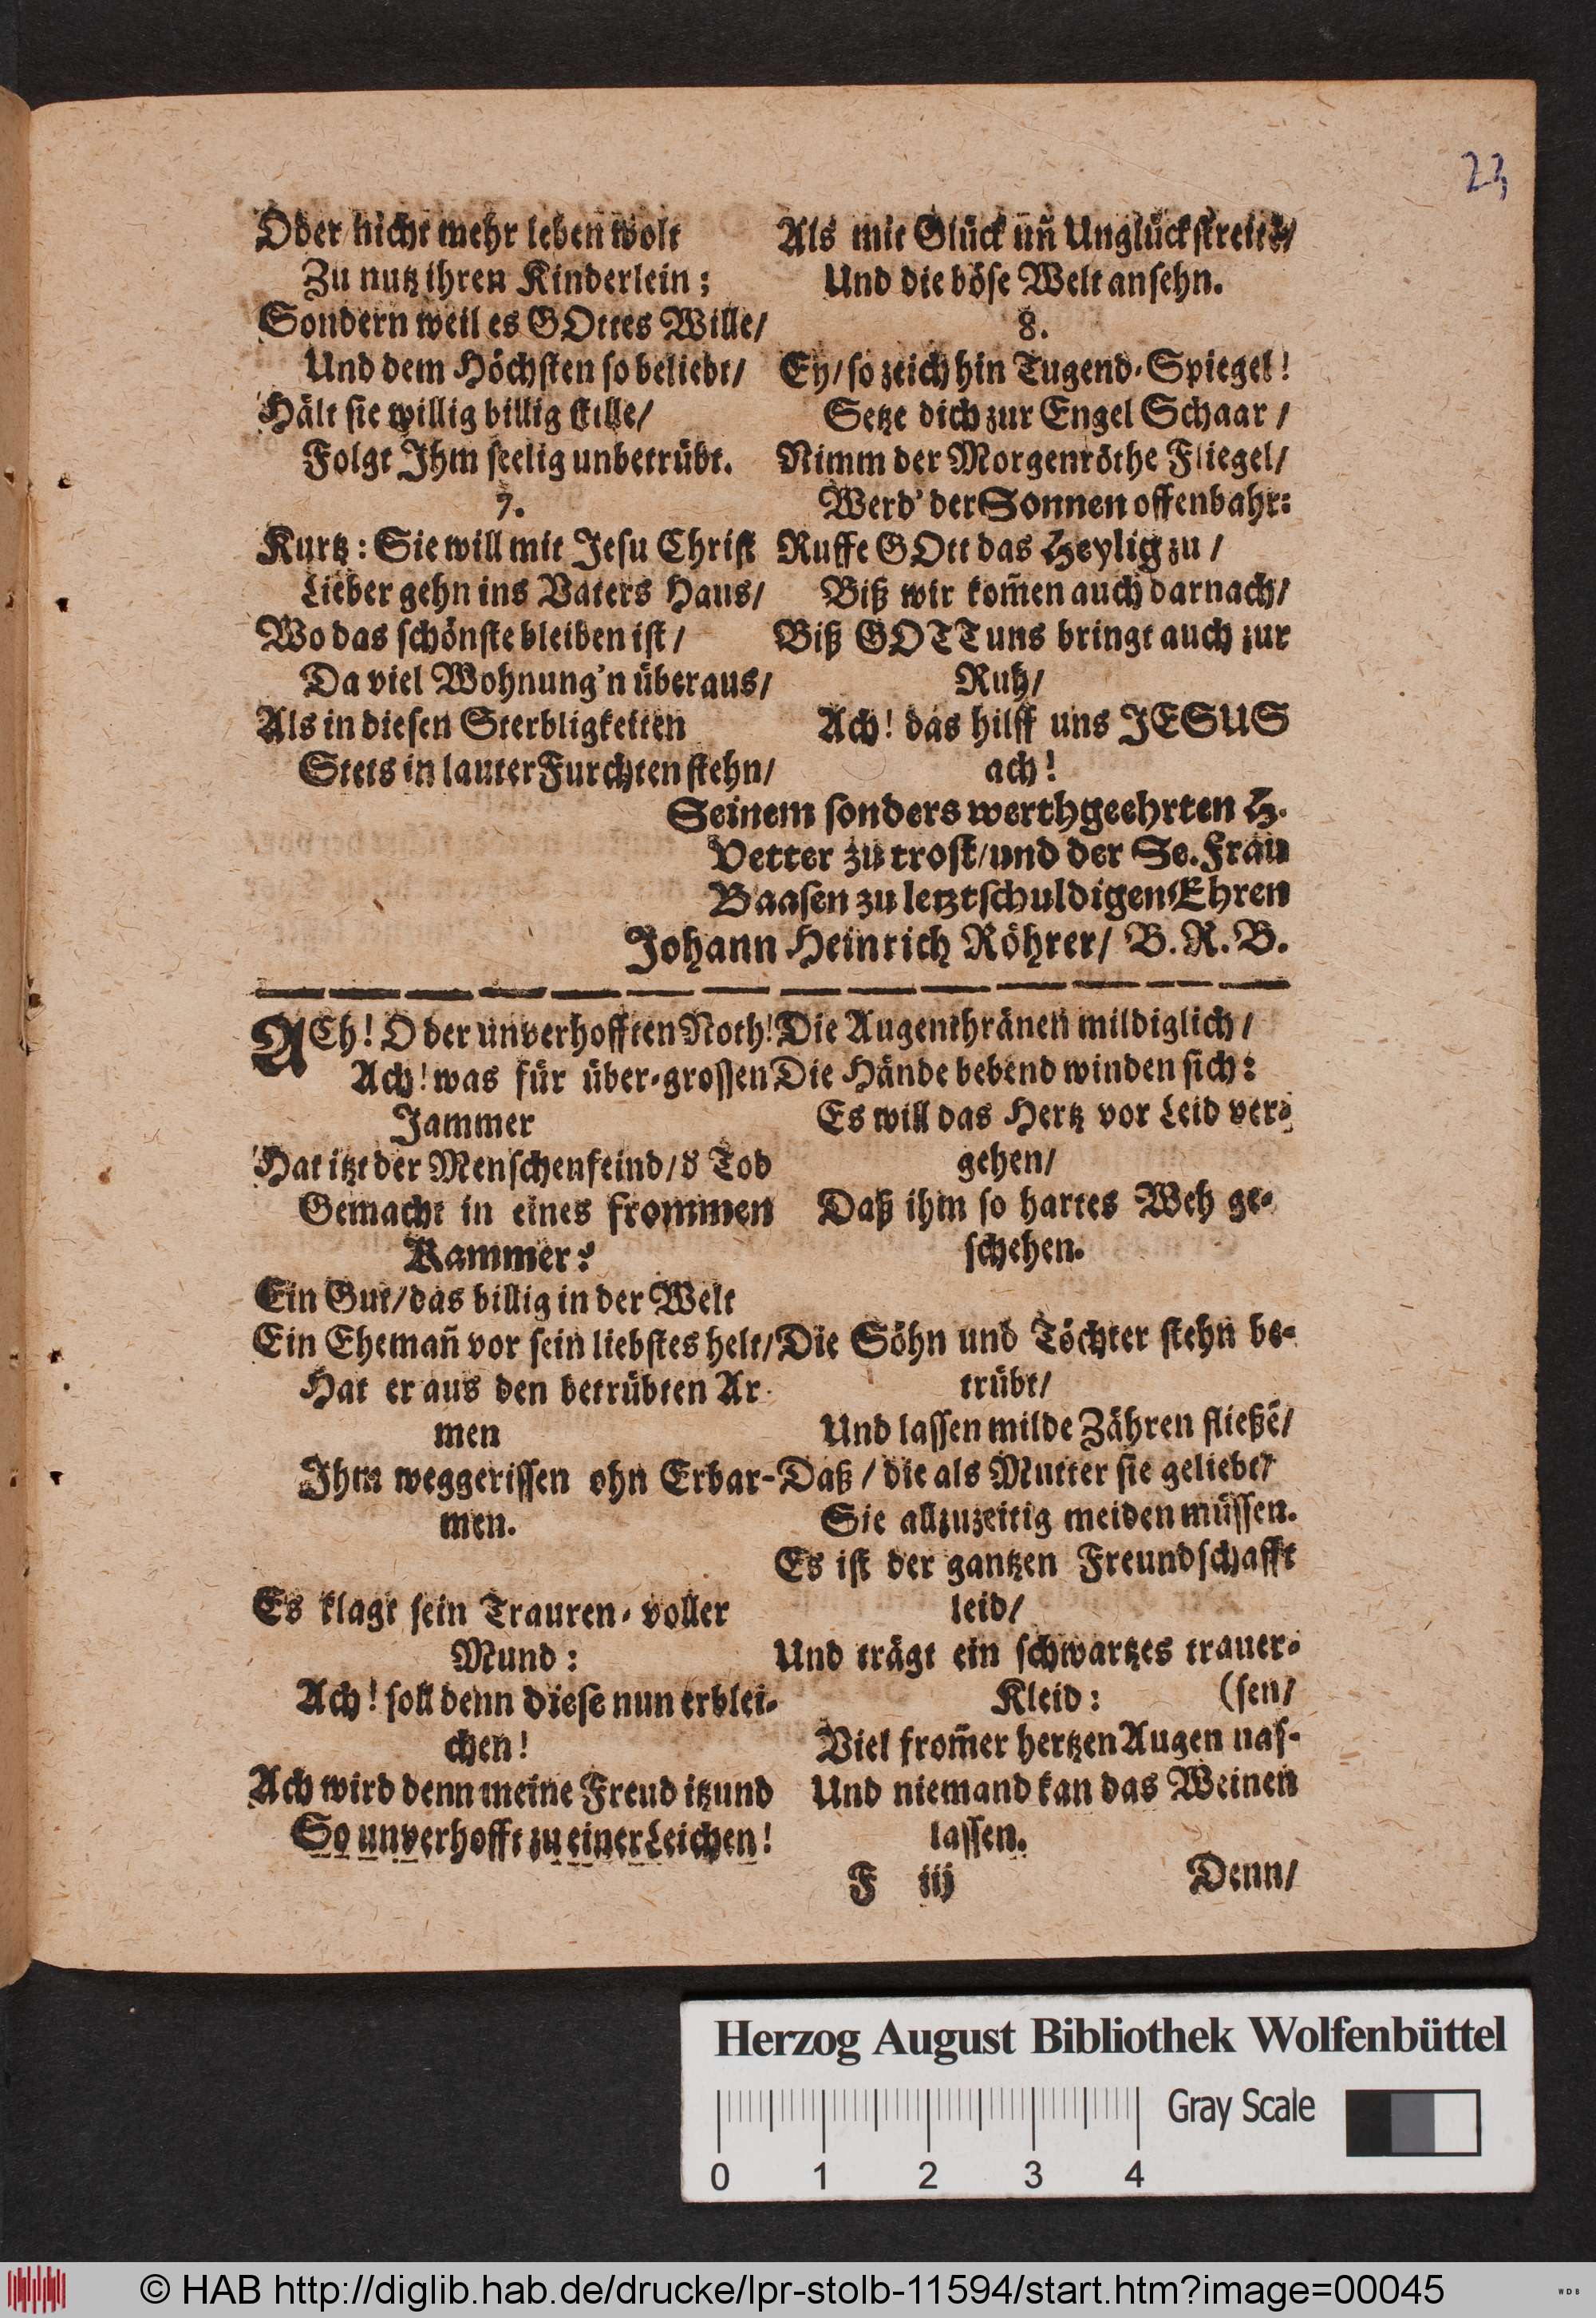 23
Oder nicht mehr leben wolt
Zu nutz ihren Kinderlein;
Sondern weil es GOttes Wille/
Und dem Höchsten so beliebt/
Hält sie willig billig stille/
Folgt Ihm seelig unbetrübt.
7.
Kurtz: Sie will mit Jesu Christ
Lieber gehn ins Vaters Haus/
Wo das schönste bleiben ist/
Da viel Wohnung'n überaus/
Als in diesen Sterbligkeiten
Stets in lauter Furchten stehn/
Als mit Glück uñ Unglück streitē/
Und die böse Welt ansehn.
8.
Ey/ so zeich hin Tugend-Spiegel!
Setze dich zur Engel Schaar/
Nimm der Morgenröthe Fliegel/
Werd' der Sonnen offenbahr:
Ruffe GOtt das Heylig zu/
Biß wir kom̃en auch darnach/
Biß GOTT uns bringt auch zur
Ruh/
Ach! das hilff uns JESUS
ach!
Seinem sonders werthgeehrten H.
Vetter zu trost/und der Se. Frau
Baasen zu letztschuldigen Ehren
Johann Heinrich Röhrer/ B. R. B.
ACh! O der unverhofften Noth!
Ach! was für über-grossen
Jammer
Hat itzt der Menschenfeind/ď Tod
Gemacht in eines frommen
Kammer?
Ein Gut/das billig in der Welt
Ein Ehemañ vor sein liebstes helt/
Hat er aus den betrübten Ar-
men
Ihm weggerissen ohn Erbar-
men.
Es klagt sein Trauren-voller
Mund:
Ach! soll denn diese nun erblei-
chen!
Ach wird denn meine Freud itzund
So unverhofft zu einer Leichen!
Die Augenthränen mildiglich/
Die Hände bebend winden sich:
Es will das Hertz vor Leid ver-
gehen/
Daß ihm so hartes Weh ge-
schehen.
Die Söhn und Töchter stehn be-
trübt/
Und lassen milde Zähren fließē/
Daß/ die als Mutter sie geliebt/
Sie allzuzeitig meiden müssen.
Es ist der gantzen Freundschafft
leid/
Und trägt ein schwartzes trauer-
Kleid: (sen/
Viel from̃er hertzen Augen nas-
Und niemand kan das Weinen
lassen.
F iij Denn/
Herzog August Bibliothek Wolfenbüttel
Gray Scale
0 1 2 3 4
© HAB http://diglib.hab.de/drucke/lpr-stolb-11594/start.htm?image=00045
WDB